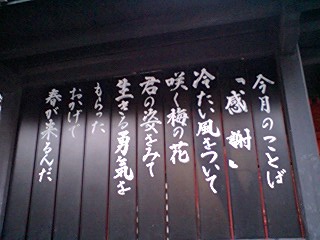 今月のことば
「感謝」
冷たい風をついて
咲く梅の花
君の姿をみて
生きる勇気を
もらった
おかげで
春が来るんだ